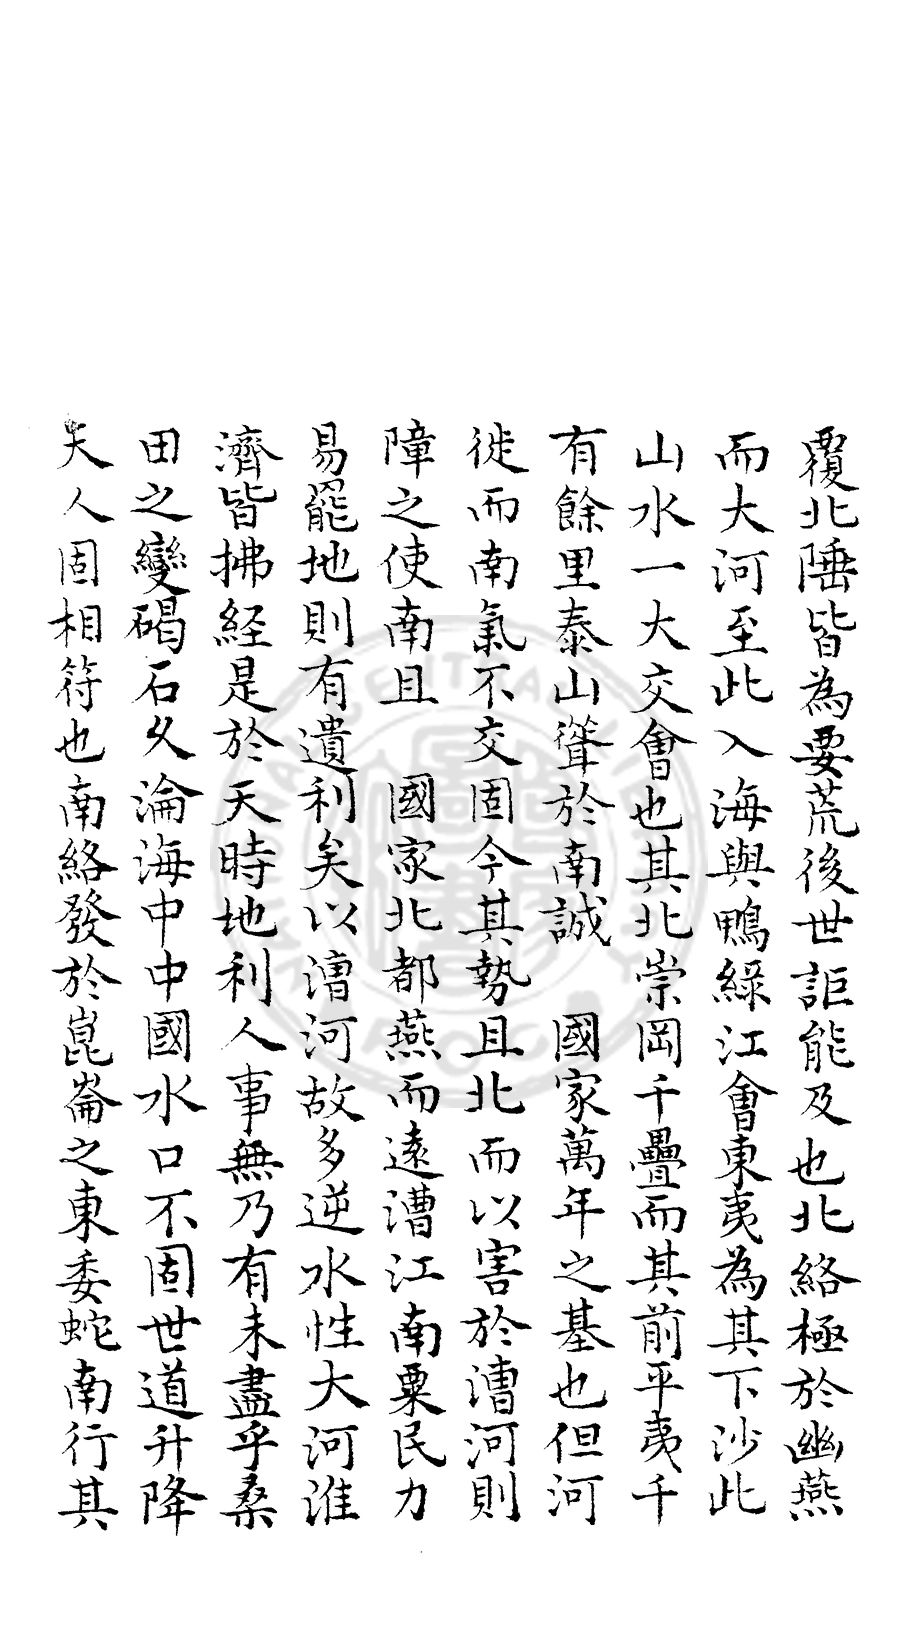 覆北陲皆為要荒後世詎能及也北絡極於幽燕
而大河至此入海與鴨綠江會東夷為其下沙此
山水一大交會也其北崇岡千疊而其前平夷千
有餘里泰山聳於南誠 國家萬年之基也但河
徙而南氣不交固今其勢且北而以害於漕河則
障之使南且 國家北都燕而遠漕江南粟民力
易罷地則有遺利矣以漕河故多逆水性大河淮
濟皆拂經是於天時地利人事無乃有未盡乎桑
田之變碣石久淪海中中國水口不固世道升降
天人固相符也南絡發於崑崙之東委蛇南行其